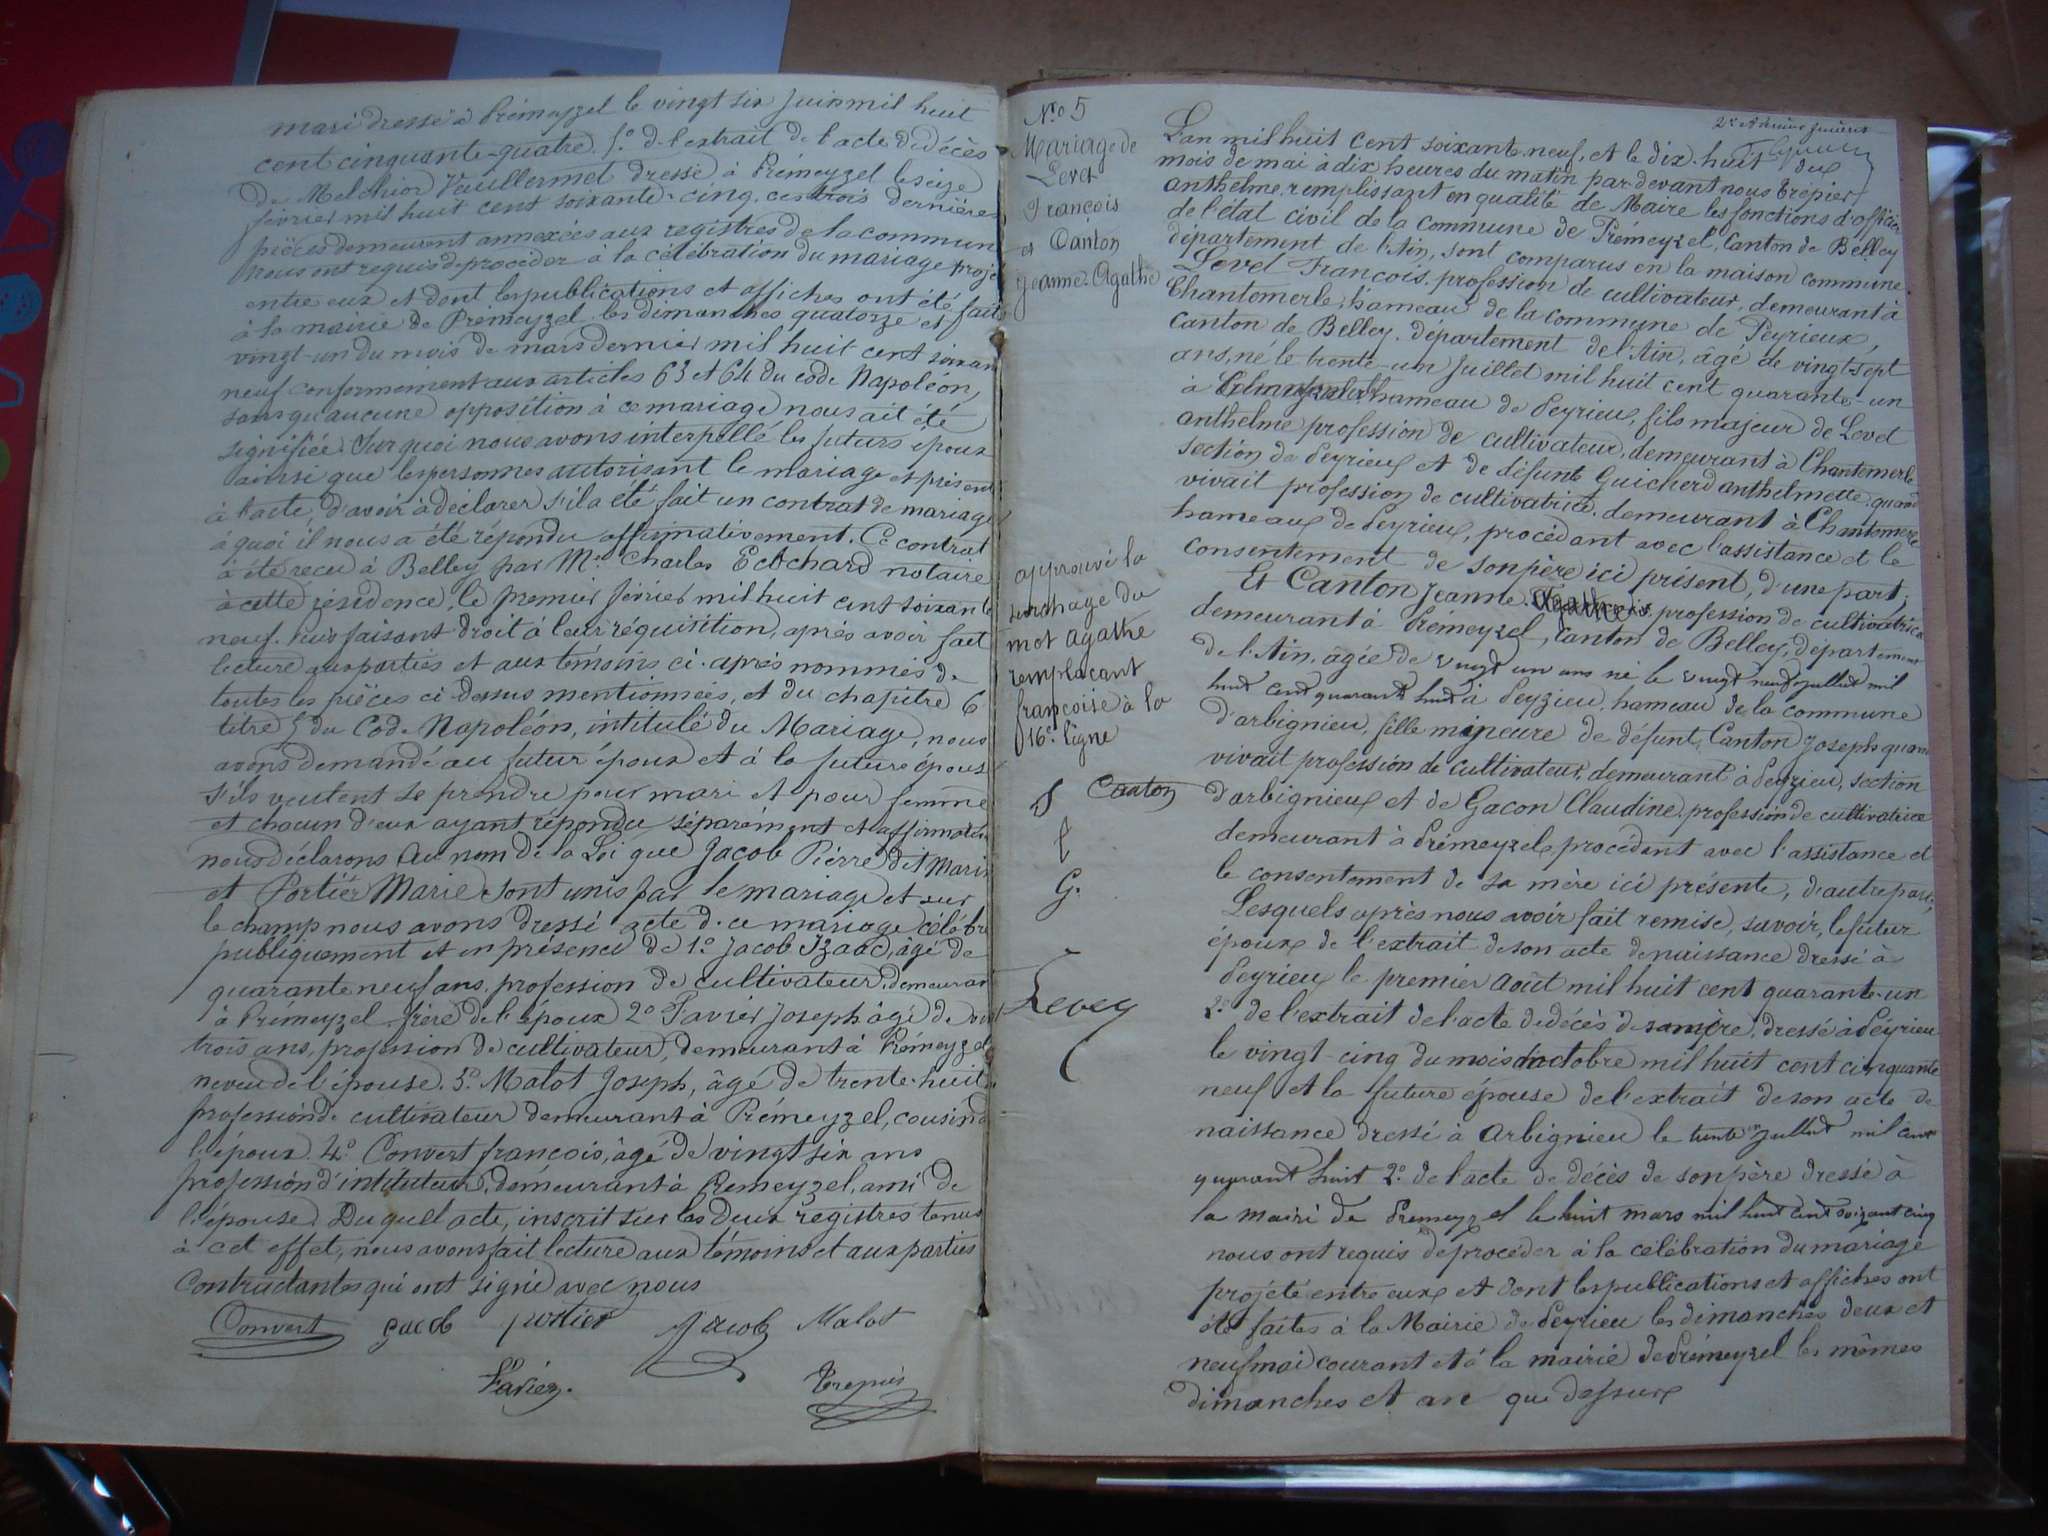 mari dressé à Prémeyzel le vingt six Juin mil huit
cent cinquante-quatre 5.o de l'extrait de l'acte de décès
de Melchior Vuillermet dressé à Prémeyzel le seize
février mil huit cent soixante-cinq, ces trois dernières
pièces demeurent annexées aux registres de la commun
nous ont requis de procéder à la célébration du mariage proje
entre eux et dont les publications et affiches ont été fait
à la mairie de Prémeyzel les dimanches quatorze et
vingt-un du mois de mars dernier mil huit cent soixan
neuf conformément aux articles 63 et 64 du code Napoléon,
sans qu'aucune opposition à ce mariage nous ait été
signifiée. Sur quoi nous avons interpellé les futurs époux
ainsi que les personnes autorisant le mariage et présen
à l'acte, d'avoir à déclarer s'il a été fait un contrat de mariage
à quoi il nous a été répondu affirmativement. Ce contrat
à été reçu à Belley par Me Charles Ecochard notaire
à cette résidence, le premier février mil huit cent soixante
neuf. Puis faisant droit à leur réquisition, après avoir fait
lecture aux parties et aux témoins ci-après nommés de
toutes les pièces ci-dessus mentionnées, et du chapitre 6
titre 5 du Code Napoléon, intitulé du Mariage, nous
avons demandé au futur époux et à la future épous
s'ils veulent se prendre pour mari et pour femme
et chacun d'eux ayant répondu séparément et affirmativ
nous déclarons Au nom de la Loi que Jacob Pierre dit Marin
et Portier Marie sont unis par le mariage et sur
le champ nous avons dressé acte de ce mariage célébré
publiquement et en présence de 1.o Jacob Izaac, âgé de
quarante neuf ans, profession de cultivateur, demeurant
à Prémeyzel frère de l'époux 2.o Favier Joseph âgé de vingt
trois ans, profession de cultivateur, demeurant à Prémeyzel
neveu de l'épouse. 3.o Malot Joseph, âgé de trente-huit
profession de cultivateur demeurant à Prémeyzel, cousin d
l'époux 4.o Convert françois, âgé de vingt six ans
profession d'instituteur, demeurant à Prémeyzel, ami de
l'épouse. Duquel acte, inscrit sur les deux registres tenus
à cet effet, nous avons fait lecture aux témoins et aux parties
Contractantes qui ont signé avec nous
Convert Jacob portier Jacob Malot
Favier Trepier
No 5
Mariage de
Levet
François
et Canton
Jeanne-Agathe
approuvé la
surchage du
mot agathe
remplaçant
françoise à la
16e ligne
Canton
G.
Levet
L'an mil huit cent soixante-neuf, et le dix-huit du
mois de mai à dix heures du matin par-devant nous Trépier
anthelme, remplissant en qualité de Maire les fonctions d'officier
de l'état civil de la commune de Prémeyzel, Canton de Belley
département de l'Ain, sont comparus en la maison commune.
Levet François, profession de cultivateur, demeurant à
Chantemerle, hameau de la commune de Peyrieux,
canton de Belley, département de l'Ain, âgé de vingt-sept
ans, né le trente-un Juillet mil huit cent quarante-un
à hameau de Peyrieu, fils majeur de Levet
anthelme profession de cultivateur, demeurant à Chantemerle
section de Peyrieux et de défunte Guicherd anthelmette quand
vivait profession de cultivatrice demeurant à Chantemerle
hameaux de Peyrieux, procédant avec l'assistance et le
consentement de son père ici présent, d'une part;
Et Canton Jeanne Agathe profession de cultivatrice
demeurant à Prémeyzel, canton de Belley, département
de l'Ain, âgée de vingt un ans né le vingt neuf juillet mil
huit cent quarant huit à Peyzieu, hameau de la commune
d'arbignieu, fille mineure de défunt Canton Joseph quand
vivait profession de cultivateur, demeurant à Peyzieu, section
d'arbignieux et de Gacon Claudine profession de cultivatrice
demeurant à Prémeyzel, procédant avec l'assistance et
le consentement de sa mère ici présente, d'autre part;
Lesquels après nous avoir fait remise, savoir, le futur
époux de l'extrait de son acte de naissance dressé à
Peyrieu le premier Août mil huit cent quarante-un
2.o de l'extrait de l'acte de décès de sa mère, dressé à Peyrieu
le vingt-cinq du mois d'octobre mil huit cent cinquante
neuf et la future épouse de l'extrait de son acte de
naissance dressé à Arbignieu le trente juillet mil cent
quarant huit 2.o de l'acte de décès de son père dressé à
la mairi de Premeyzel le huit mars mil huit cent soixant cinq
nous ont requis de procéder à la célébration du mariage
projété entre eux et dont les publications et affiches ont
été faites à la Mairie de Peyrieu les dimanches deux et
neuf mai courant et à la mairie de Prémeyzel les mêmes
dimanches et an que dessus